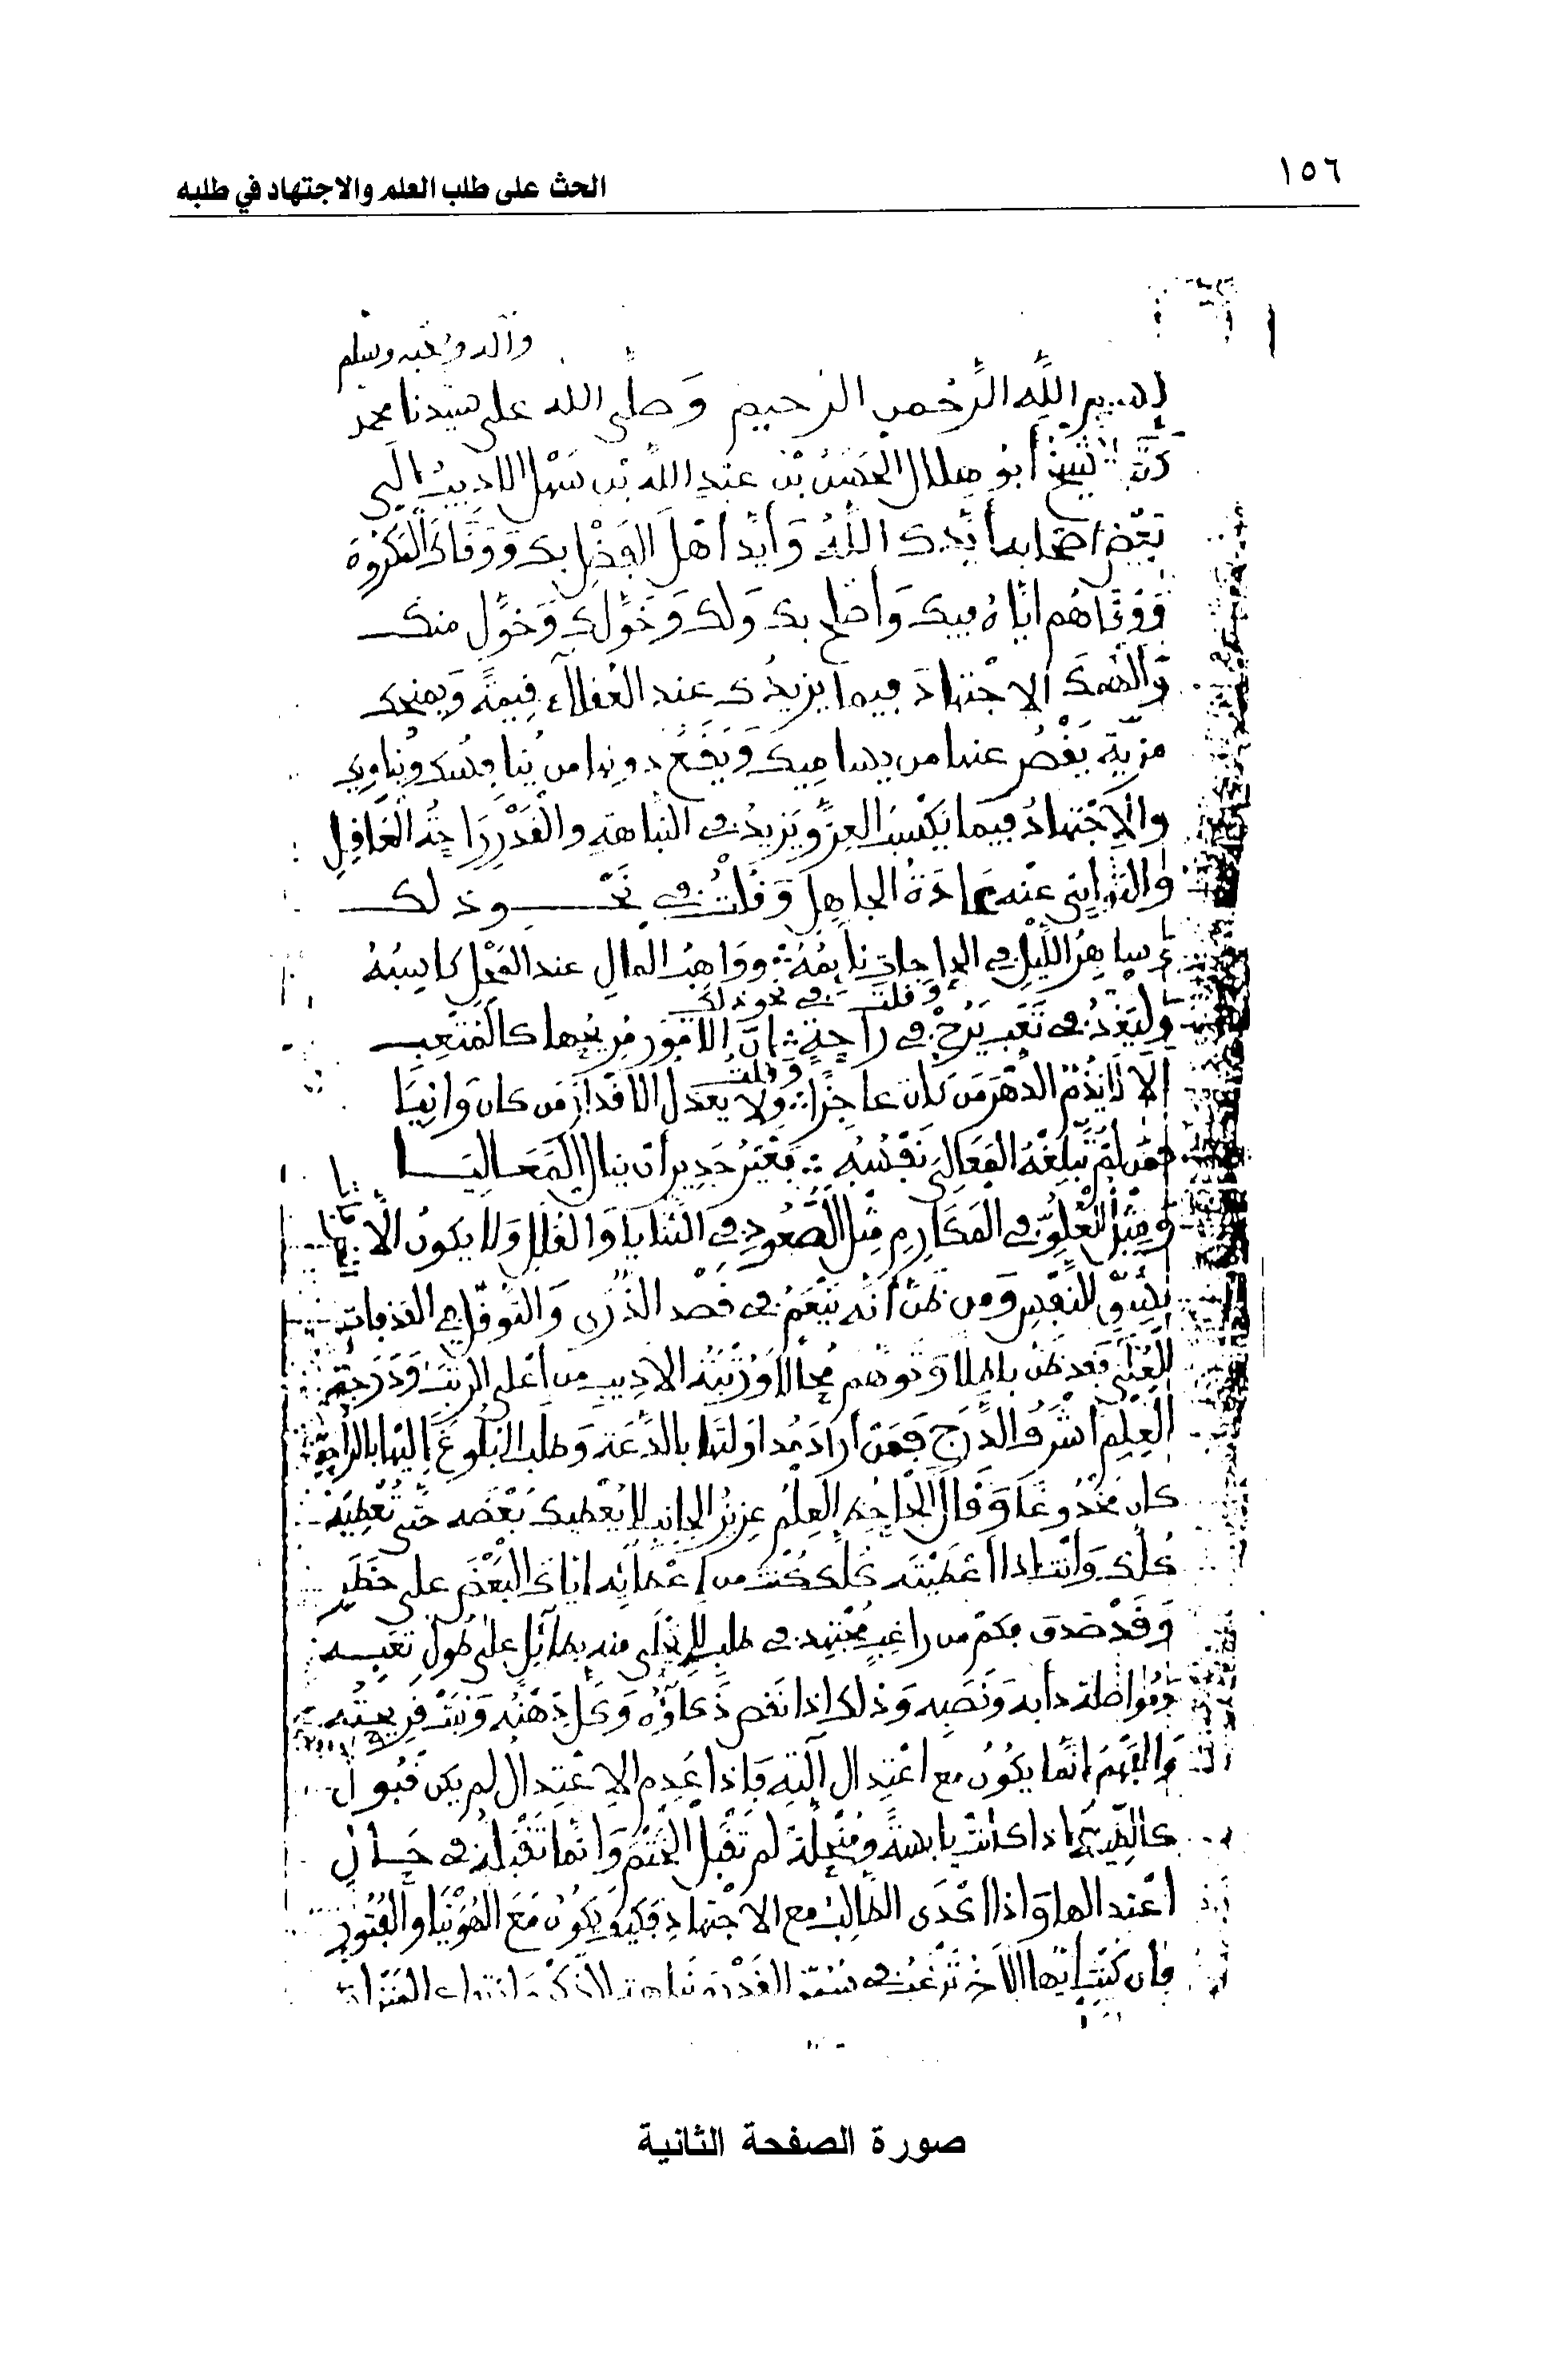 ١٥٦
الحث على طلب العلم والاجتهاد في طلبه
وآله وصحبه وسلم
بسم الله الرحمن الرحيم وصلى الله على سيدنا محمد
كتب الشيخ أبو هلال الحسن بن عبد الله بن سهل الاديب الى
بعض اصحابه أيدك الله وأيد اهل الفضل بك ووقاك المكروه
ووقاهم اياه فيك واصلح بك ولك وخولك وخول منك
والهمك الاجتهاد فيما يزيدك عند العقلاء قيمة ويمنحك
مزية يقصر عنها من يساميك ويقع دونها من ينافسك ويناويك
والاجتهاد فيما يكسب العز ويزيد في النباهة والقدر راحة العاقل
والتواني عنه عادة الجاهل وقلت في نحو ذلك
ساهر الليل في الحاجات نائمه ∴ وواهب المال عند المحل كاسبه
وقلت في نحو ذلك
وليغد في تعب يرح في راحة ∴ ان الامور مريحها كالمتعب
وقلت
الا لا يذم الدهر من كان عاجزا ∴ ولا يعذل الاقدار من كان وانيا
فمن لم تبلغه المعالي نفسه ∴ فغير جدير ان ينال المعاليا
ومثل العلو في المكارم مثل الصعود في الثنايا والقلل ولا يكون الا
بشق النفس ومن ظن أنه يتنعم في قصد الذرى والتوقل في القذفات
العلى فقد ظن باطلا وتوهم محالا ورتبة الاديب من اعلى الرتب ودرجة
العلم اشرف الدرج فمن أراد مداولتها بالدعة وطلب البلوغ اليها بالراحة
كان مخدوعا وقال الجاحظ العلم عزيز الجانب لا يعطيك بعضه حتى تعطيه
كلك وانت اذا اعطيته كلك كنت من اعطائه اياك البعض على خطر
وقد صدق فكم من راغب مجتهد في طلبه لا يحلى منه بطائل على طول تعبه
ومواصلة دأبه ونصبه وذلك اذا نقص ذكاؤه وكل ذهنه ونبت قريحته
والفهم انما يكون مع اعتدال آلته فاذا عدم الاعتدال لم يكن قبول
كالطينة اذا كانت يابسة و منحلة لم تقبل الختم وانما تقبله في حال
اعتدالها واذا اكدى الطالب مع الاجتهاد فكيف يكون مع الهوينا والفتور
فان كنت ايها الاخ ترغب في سمو القدر ونباهة الذكر وارتفاع المنزلة
صورة الصفحة الثانية